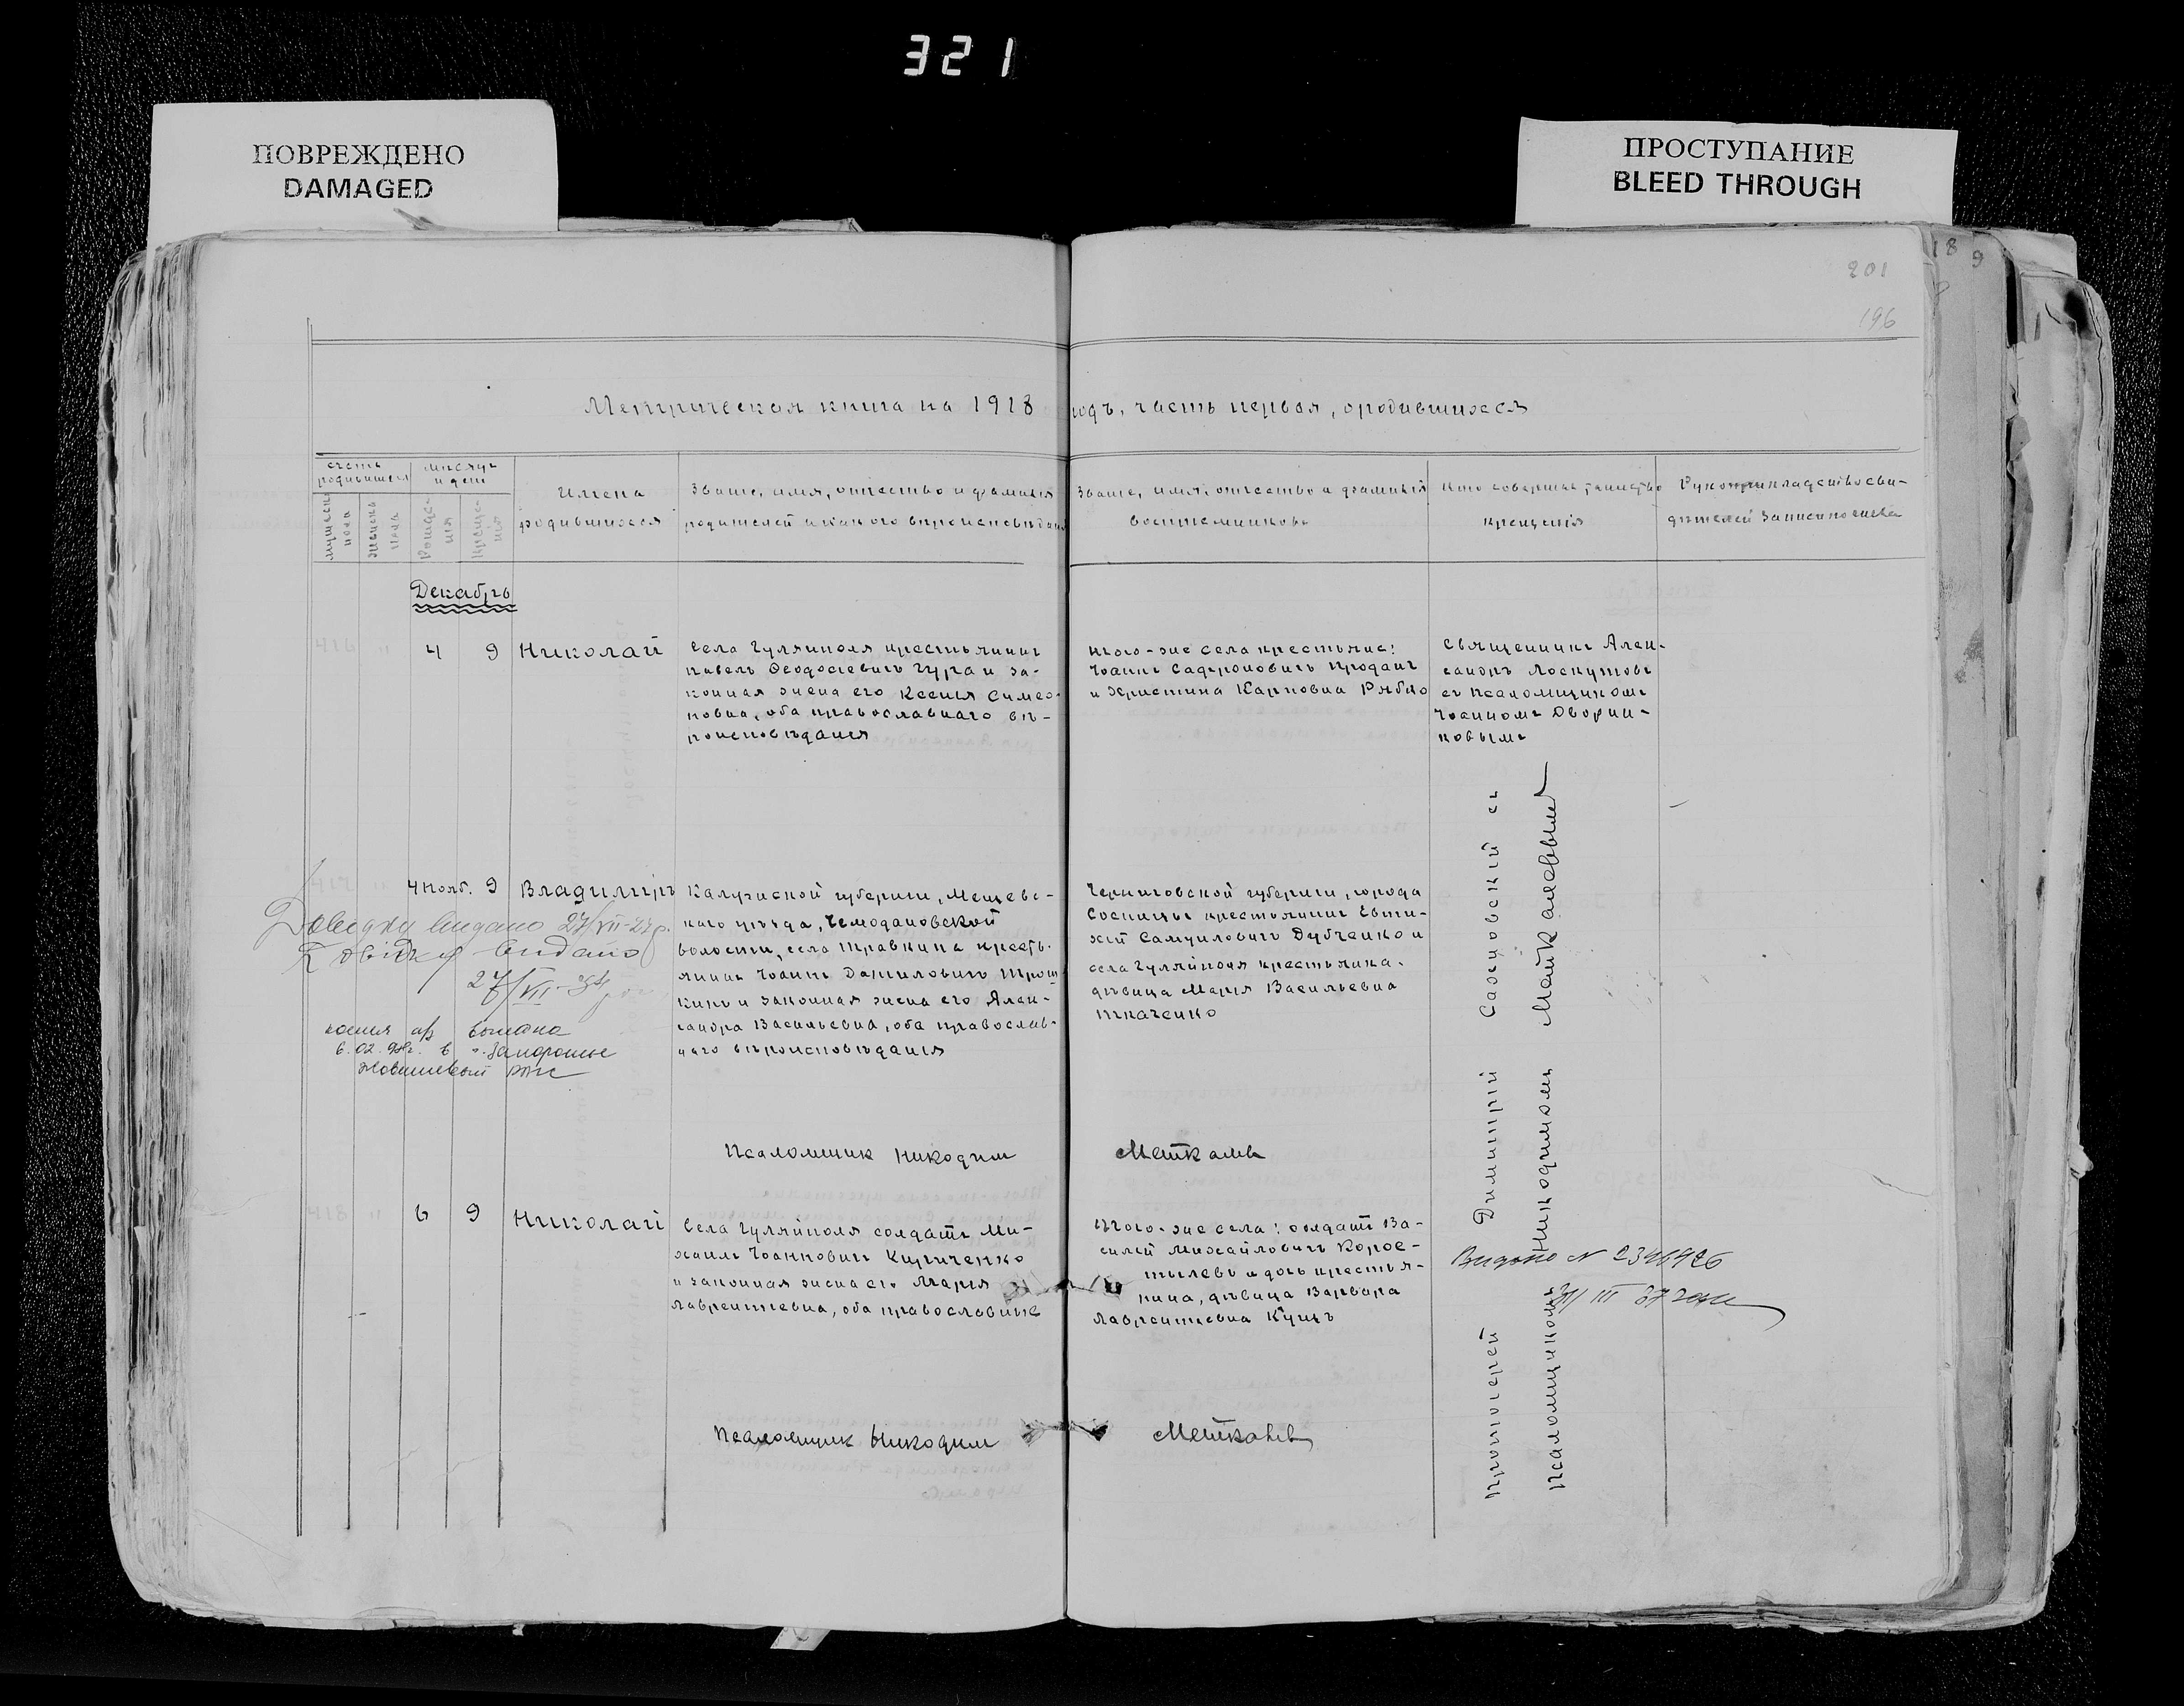 321
ПОВРЕЖДЕНО
DAMAGED
ПРОСТУПАНИЕ
BLEED THROUGH
189
201
196
Метрическая книга на 1918 годъ, часть первая, о родившихся
Счетъ родившихся
мужеска пола
женска пола
Мѣсяцъ и день
Рожденія
Крещенія
Имена
родившихся
Званіе, имя, отчество и фамилія
родителей и какого вѣроисповѣданія
Званіе, имя, отчество и фамилія
воспріемниковъ
Кто совершалъ таинство
крещенія
Рукоприкладство сви-
дѣтелей записи по желанію
Декабрь
416 " 4 9 Николай
Села Гуляйполя крестьянинъ
Павелъ Ѳеодосіевичъ Гура и за-
конная жена его Ксенія Симео-
новна, оба православнаго вѣ-
роисповѣданія
того-же села крестьяне:
Іоаннъ Софроновичъ Проданъ
и Христина Карповна Рябко
Священникъ Алек-
сандръ Лоскутовъ
съ псаломщикомъ
Іоанномъ Дворни-
ковымъ
417 " 4 Нояб. 9 Владиміръ
Калужской губерніи, Мещевс-
каго уѣзда, Чемодановской
волости, села Травкина кресть-
янинъ Іоаннъ Даниловичъ Трош
кинъ и законная жена его Алек-
сандра Васильевна, оба православ-
наго вѣроисповѣданія
Черниговской губерніи, города
Сосницы крестьянинъ Евти-
хій Самуиловичъ Дубченко и
села Гуляйполя крестьянка-
дѣвица Марія Васильевна
Ткаченко
Довідку видано 27/VII-27р.
Довідку видано
27/VII-34
копия а/з выдана
6.02.98г. в г. Запорожье
Жовтневый
Псаломщик Никодим Маткалев
418 " 6 9 Николай
Села Гуляйполя солдатъ Ми-
хаилъ Іоанновичъ Кириченко
и законная жена его Марія
Лаврентіевна, оба православные
того-же села: солдатъ Ва-
силій Михайловичъ Корос-
тылевъ и дочь крестья-
нина, дѣвица Варвара
Лаврентіевна Куцъ
Псаломщик Никодим Маткалев
Протоіерей Димитрій Сахновскій съ
псаломщикомъ Никодимомъ Маткалевымъ
Видано N 2346926
31/III 37 года